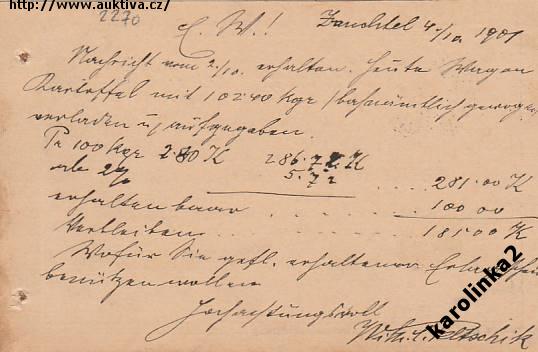 http://www.auktiva.cz/
2270
E. W.! Zauchtel 4/10 1901
Nachricht vom 2/10. erhalten. Heute Wagon
Kartoffel mit 10240 Kgr /bahnämtlich gewogen
verladen u. aufgegeben.
Pr 100 Kgr 2.80 K 286.72 K
ab 2% 5.72 .... 281.00 K
erhalten baar ..... 100 00
Verbleiben ..... 181 00 K
Wofür Sie gefl. erhaltenen
benützen wollen
Hochachtungsvoll
karolinka2